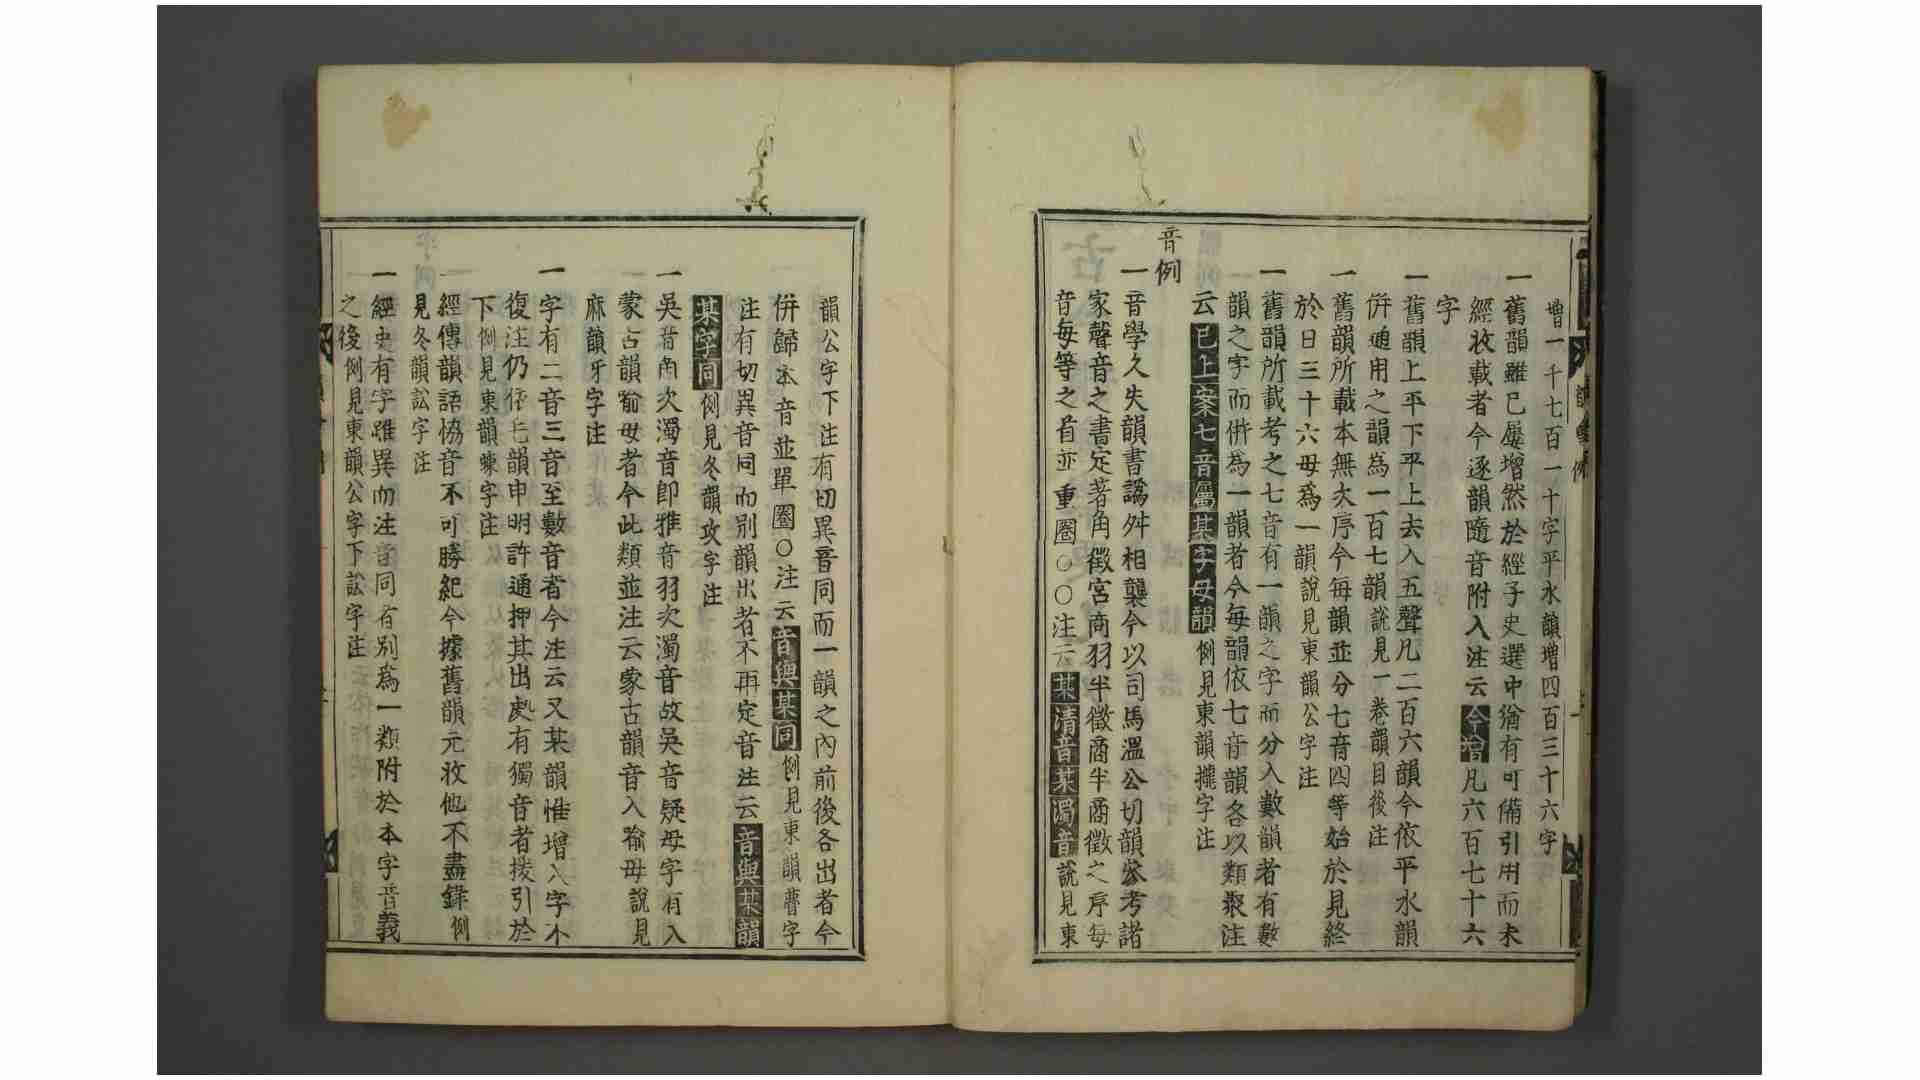 增一千七百一十字平水韻增四百三十六字
一舊韻雖已屢增然於經子史選中猶有可備引用而未
經收載者今逐韻隨音附入注云今增凡六百七十六
字
一舊韻上平下平上去入五聲凡二百六韻今依平水韻
併通用之韻為一百七韻說見一卷韻目後注
一舊韻所載本無次序今每韻並分七音四等始於見終
於日三十六母為一韻說見東韻公字注
一舊韻所載考之七音有一韻之字而分入數韻者有數
韻之字而併為一韻者今每韻依七音韻各以類聚注
云已上案七音屬某字母韻例見東韻攏字注
音例
一音學久失韻書譌舛相襲今以司馬溫公切韻參考諸
家聲音之書定著角徵宮商羽半徵商半商徵之序每
音每等之首並重圈○○注云某清音某濁音說見東
韻公字下注有切異音同而一韻之內前後各出者今
併歸本音並單圈○注云音與某同例見東韻瞢字
注有切異音同而別韻出者不再定音注云音與某韻
某字同例見冬韻攻字注
一吳音角次濁音即雅音羽次濁音故吳音疑母字有入
蒙古韻喻母者今此類並注云蒙古韻音入喻母說見
麻韻牙字注
一字有二音三音至數音者今注云又某韻惟增入字不
復注仍依毛韻申明許通押其出處有獨音者援引於
下例見東韻蝀字注
經傳韻語協音不可勝紀今據舊韻元收他不盡錄例
見冬韻訟字注
一經史有字雖異而注音同者別爲一類附於本字音義
之後例見東韻公字下訟字注